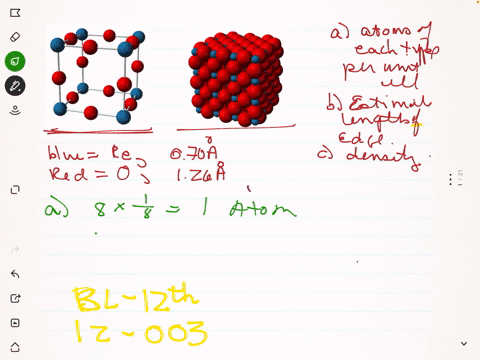 a) atoms of
each type
per unit
cell
b) Estimal
lengths of
Edge.
c) density.
blue = Re, 0.70Å
Red = O, 1.26Å
a) 8 × 1/8 = 1 Atom
BL-12th
12-003
1/21